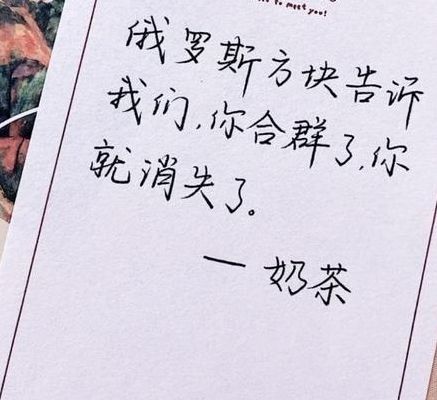 to meet you!
俄罗斯方块告诉
我们,你合群了,你
就消失了。
— 奶茶